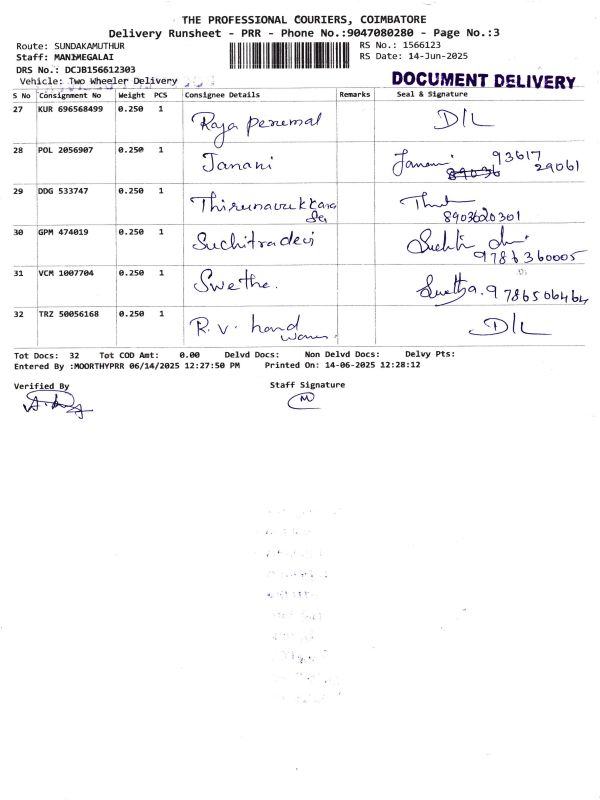 THE PROFESSIONAL COURIERS, COIMBATORE
Delivery Runsheet - PRR - Phone No.:9047080280 - Page No.:3
Route: SUNDAKAMUTHUR RS No.: 1566123
Staff: MANIMEGALAI RS Date: 14-Jun-2025
DRS No.: DCJB156612303
Vehicle: Two Wheeler Delivery DOCUMENT DELIVERY
S No Consignment No Weight PCS Consignee Details Remarks Seal & Signature
27 KUR 696568499 0.250 1 Raja perumal D/L
28 POL 2056907 0.250 1 Janani Janani 93617 29061
29 DDG 533747 0.250 1 Thirunavukkarasu
8903620301
30 GPM 474019 0.250 1 Suchitradevi
9786360005
31 VCM 1007704 0.250 1 Swetha. Swetha. 9786506464
32 TRZ 50056168 0.250 1 R.V. hand D/L
Tot Docs: 32 Tot COD Amt: 0.00 Delvd Docs: Non Delvd Docs: Delvy Pts:
Entered By :MOORTHYPRR 06/14/2025 12:27:50 PM Printed On: 14-06-2025 12:28:12
Verified By Staff Signature
M